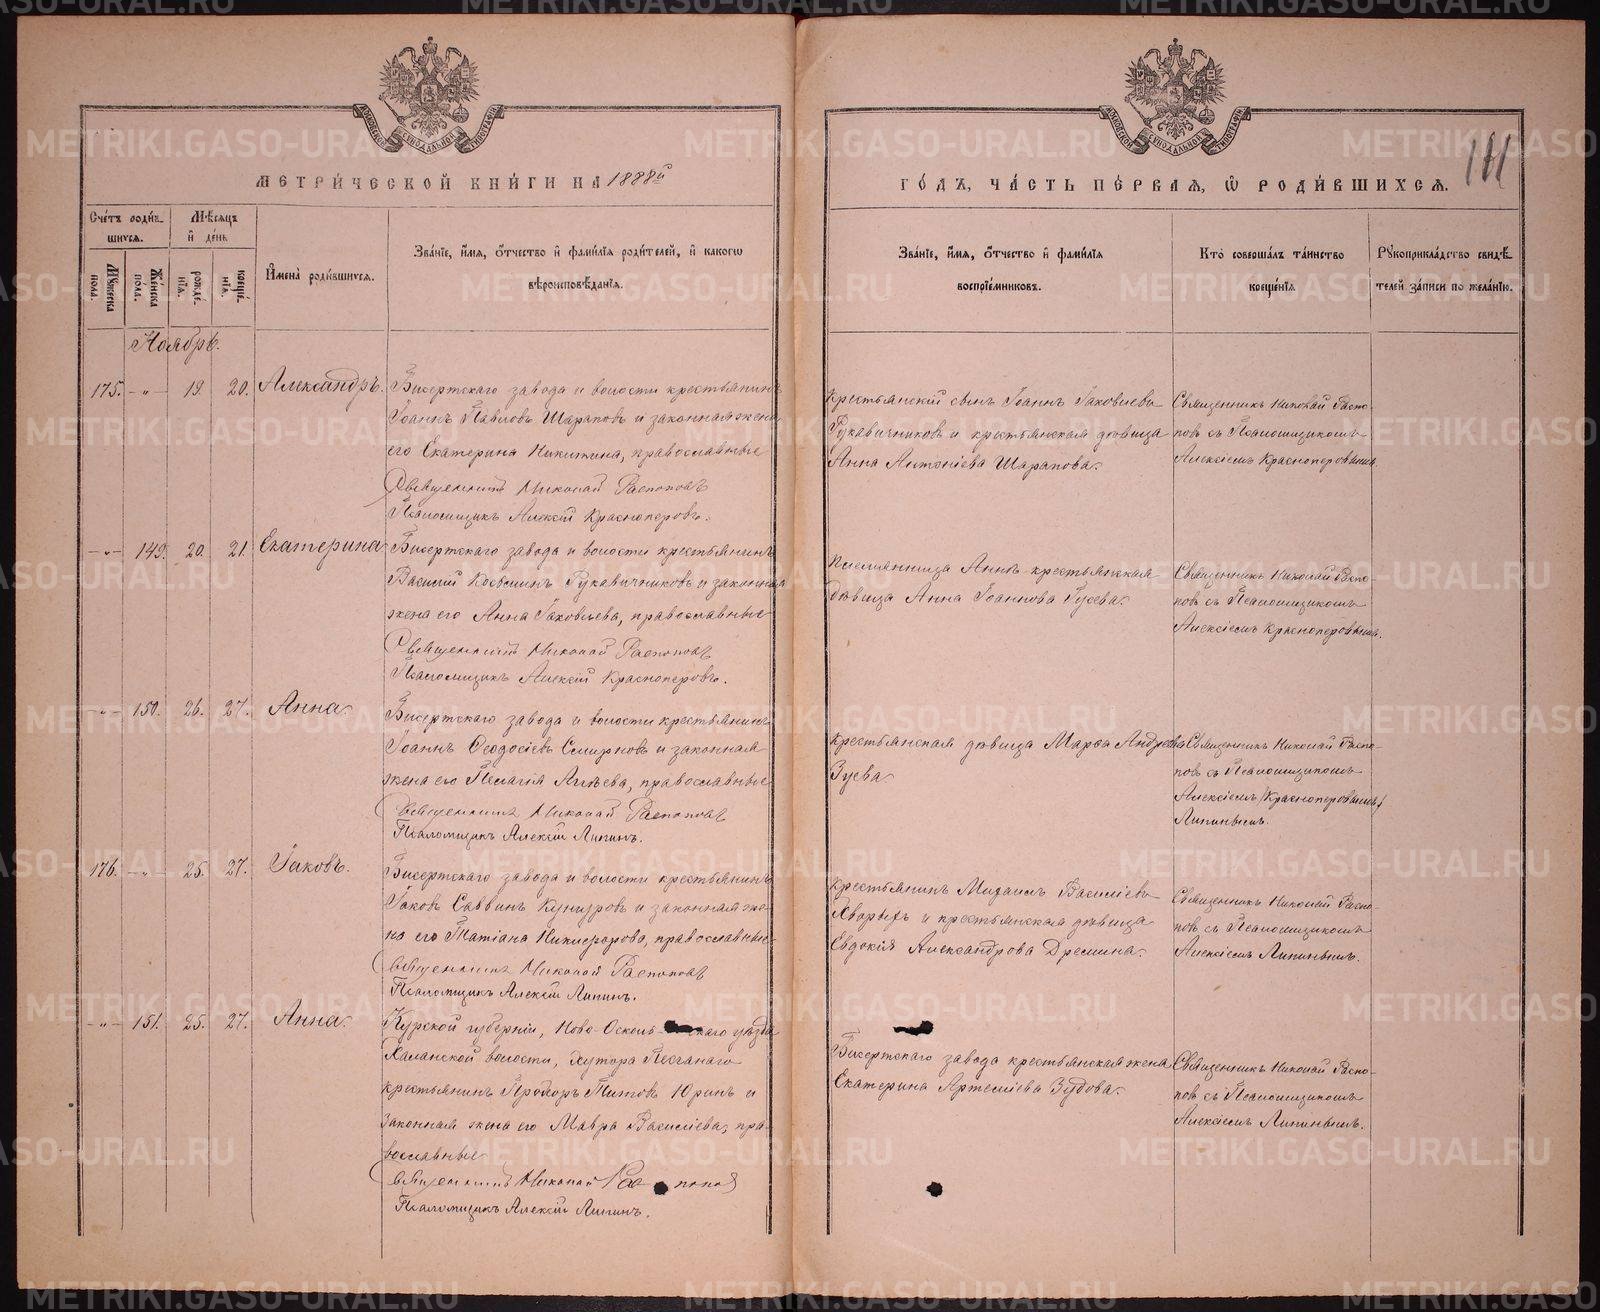 МЕТРИ́ЧЕСКОЙ КНИ́ГИ НА 1888й
ГО́ДЪ, ЧА́СТЬ ПЕ́РВАЯ, Ѿ РОДИ́ВШИХСѦ.
Сче́тъ роди́в-
шихсѧ.
Мѹжеска
пола.
Же́нска
по́ла.
Мѣ́сѧцъ
и҆ де́нь
рожде́-
нїѧ.
креще́-
нїѧ.
И҆мена̀ роди́вшихсѧ.
Зва́нїе, и҆́мѧ, ѻ҆́тчество и҆ фами́лїѧ роди́телей, и҆ какогѡ
вѣроисповѣ́данїѧ.
Зва́нїе, и҆́мѧ, ѻ҆́тчество и҆ фами́лїѧ
воспрїе́мниковъ.
Кто̀ соверша́лъ та́инство
креще́нїѧ
Рꙋкоприкла́дство свидѣ́-
телей за́писи по жела́нїю.
Ноябрь.
175. -"- 19. 20. Александръ.
Бисертскаго завода и волости крестьянинъ
Іоаннъ Павловъ Шараповъ и законная жена
его Екатерина Никитина, православные
Священникъ Николай Распоповъ
Псаломщикъ Алексій Красноперовъ.
Крестьянскій сынъ Іоаннъ Іаковлевъ
Рукавичниковъ и крестьянская дѣвица
Анна Антоніева Шарапова.
Священникъ Николай Распо-
повъ съ Псаломщикомъ
Алексіемъ Красноперовымъ.
-"- 149. 20. 21. Екатерина
Бисертскаго завода и волости крестьянинъ
Василій Косминъ Рукавичниковъ и законная
жена его Анна Іаковлева, православные
Священникъ Николай Распоповъ
Псаломщикъ Алексій Красноперовъ.
крестьянская
дѣвица Анна Іоаннова Гусева.
Священникъ Николай Распо-
повъ съ Псаломщикомъ
Алексіемъ Красноперовымъ.
-"- 150. 26. 27. Анна.
Бисертскаго завода и волости крестьянинъ
Іоаннъ Ѳеодосіевъ Смирновъ и законная
жена его Пелагія православные
Священникъ Николай Распоповъ
Псаломщикъ Алексій Липинъ.
Крестьянская дѣвица Марѳа Андреева
Зуева
Священникъ Николай Распо-
повъ съ Псаломщикомъ
Алексіемъ (Красноперовымъ)
Липинымъ.
176. -"- 25. 27. Іаковъ.
Бисертскаго завода и волости крестьянинъ
Іаковъ Саввинъ Кунгуровъ и законная же-
на его Татіана Никифорова, православные
Священникъ Николай Распоповъ
Псаломщикъ Алексій Липинъ.
Крестьянинъ Михаилъ Василіевъ
и крестьянская дѣвица
Евдокія Александрова Дремина.
Священникъ Николай Распо-
повъ съ Псаломщикомъ
Алексіемъ Липинымъ.
-"- 151. 25. 27. Анна.
Курской губерніи, Ново-Осколь-скаго уѣзда
Халанской волости, хутора Песчанаго
крестьянинъ Прохоръ Титовъ Юринъ и
законная жена его Мавра Василіева, пра-
вославные
Священникъ Николай Распоповъ
Псаломщикъ Алексій Липинъ.
Бисертскаго завода крестьянская жена
Екатерина Артеміева Зудова.
Священникъ Николай Распо-
повъ съ Псаломщикомъ
Алексіемъ Липинымъ.
METRIKI.GASO-URAL.RU